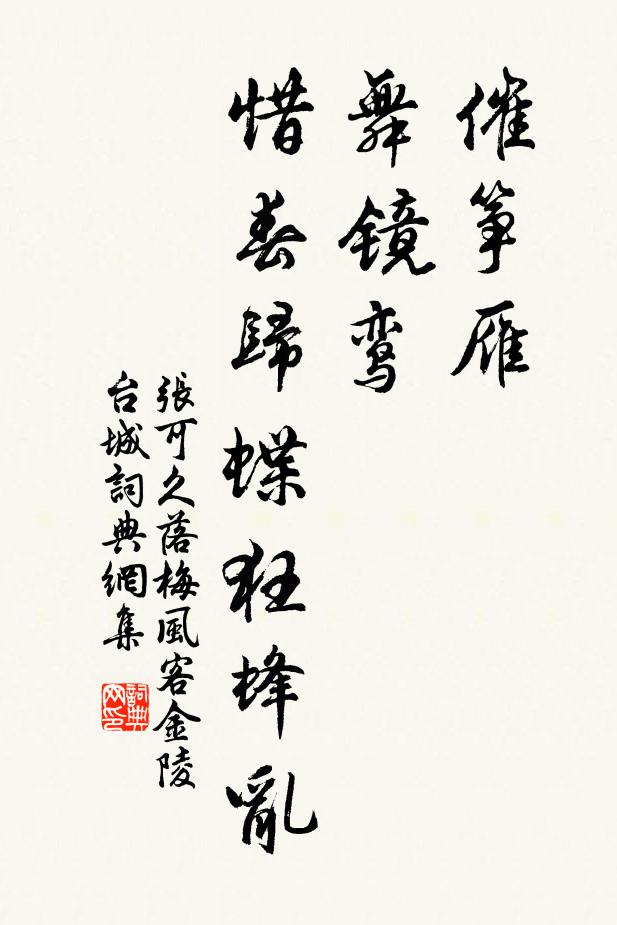 催筝雁
舞鏡鸾
惜春歸蝶狂蜂亂
張可久落梅風客金陵
台城詞典網集
詞典
网印